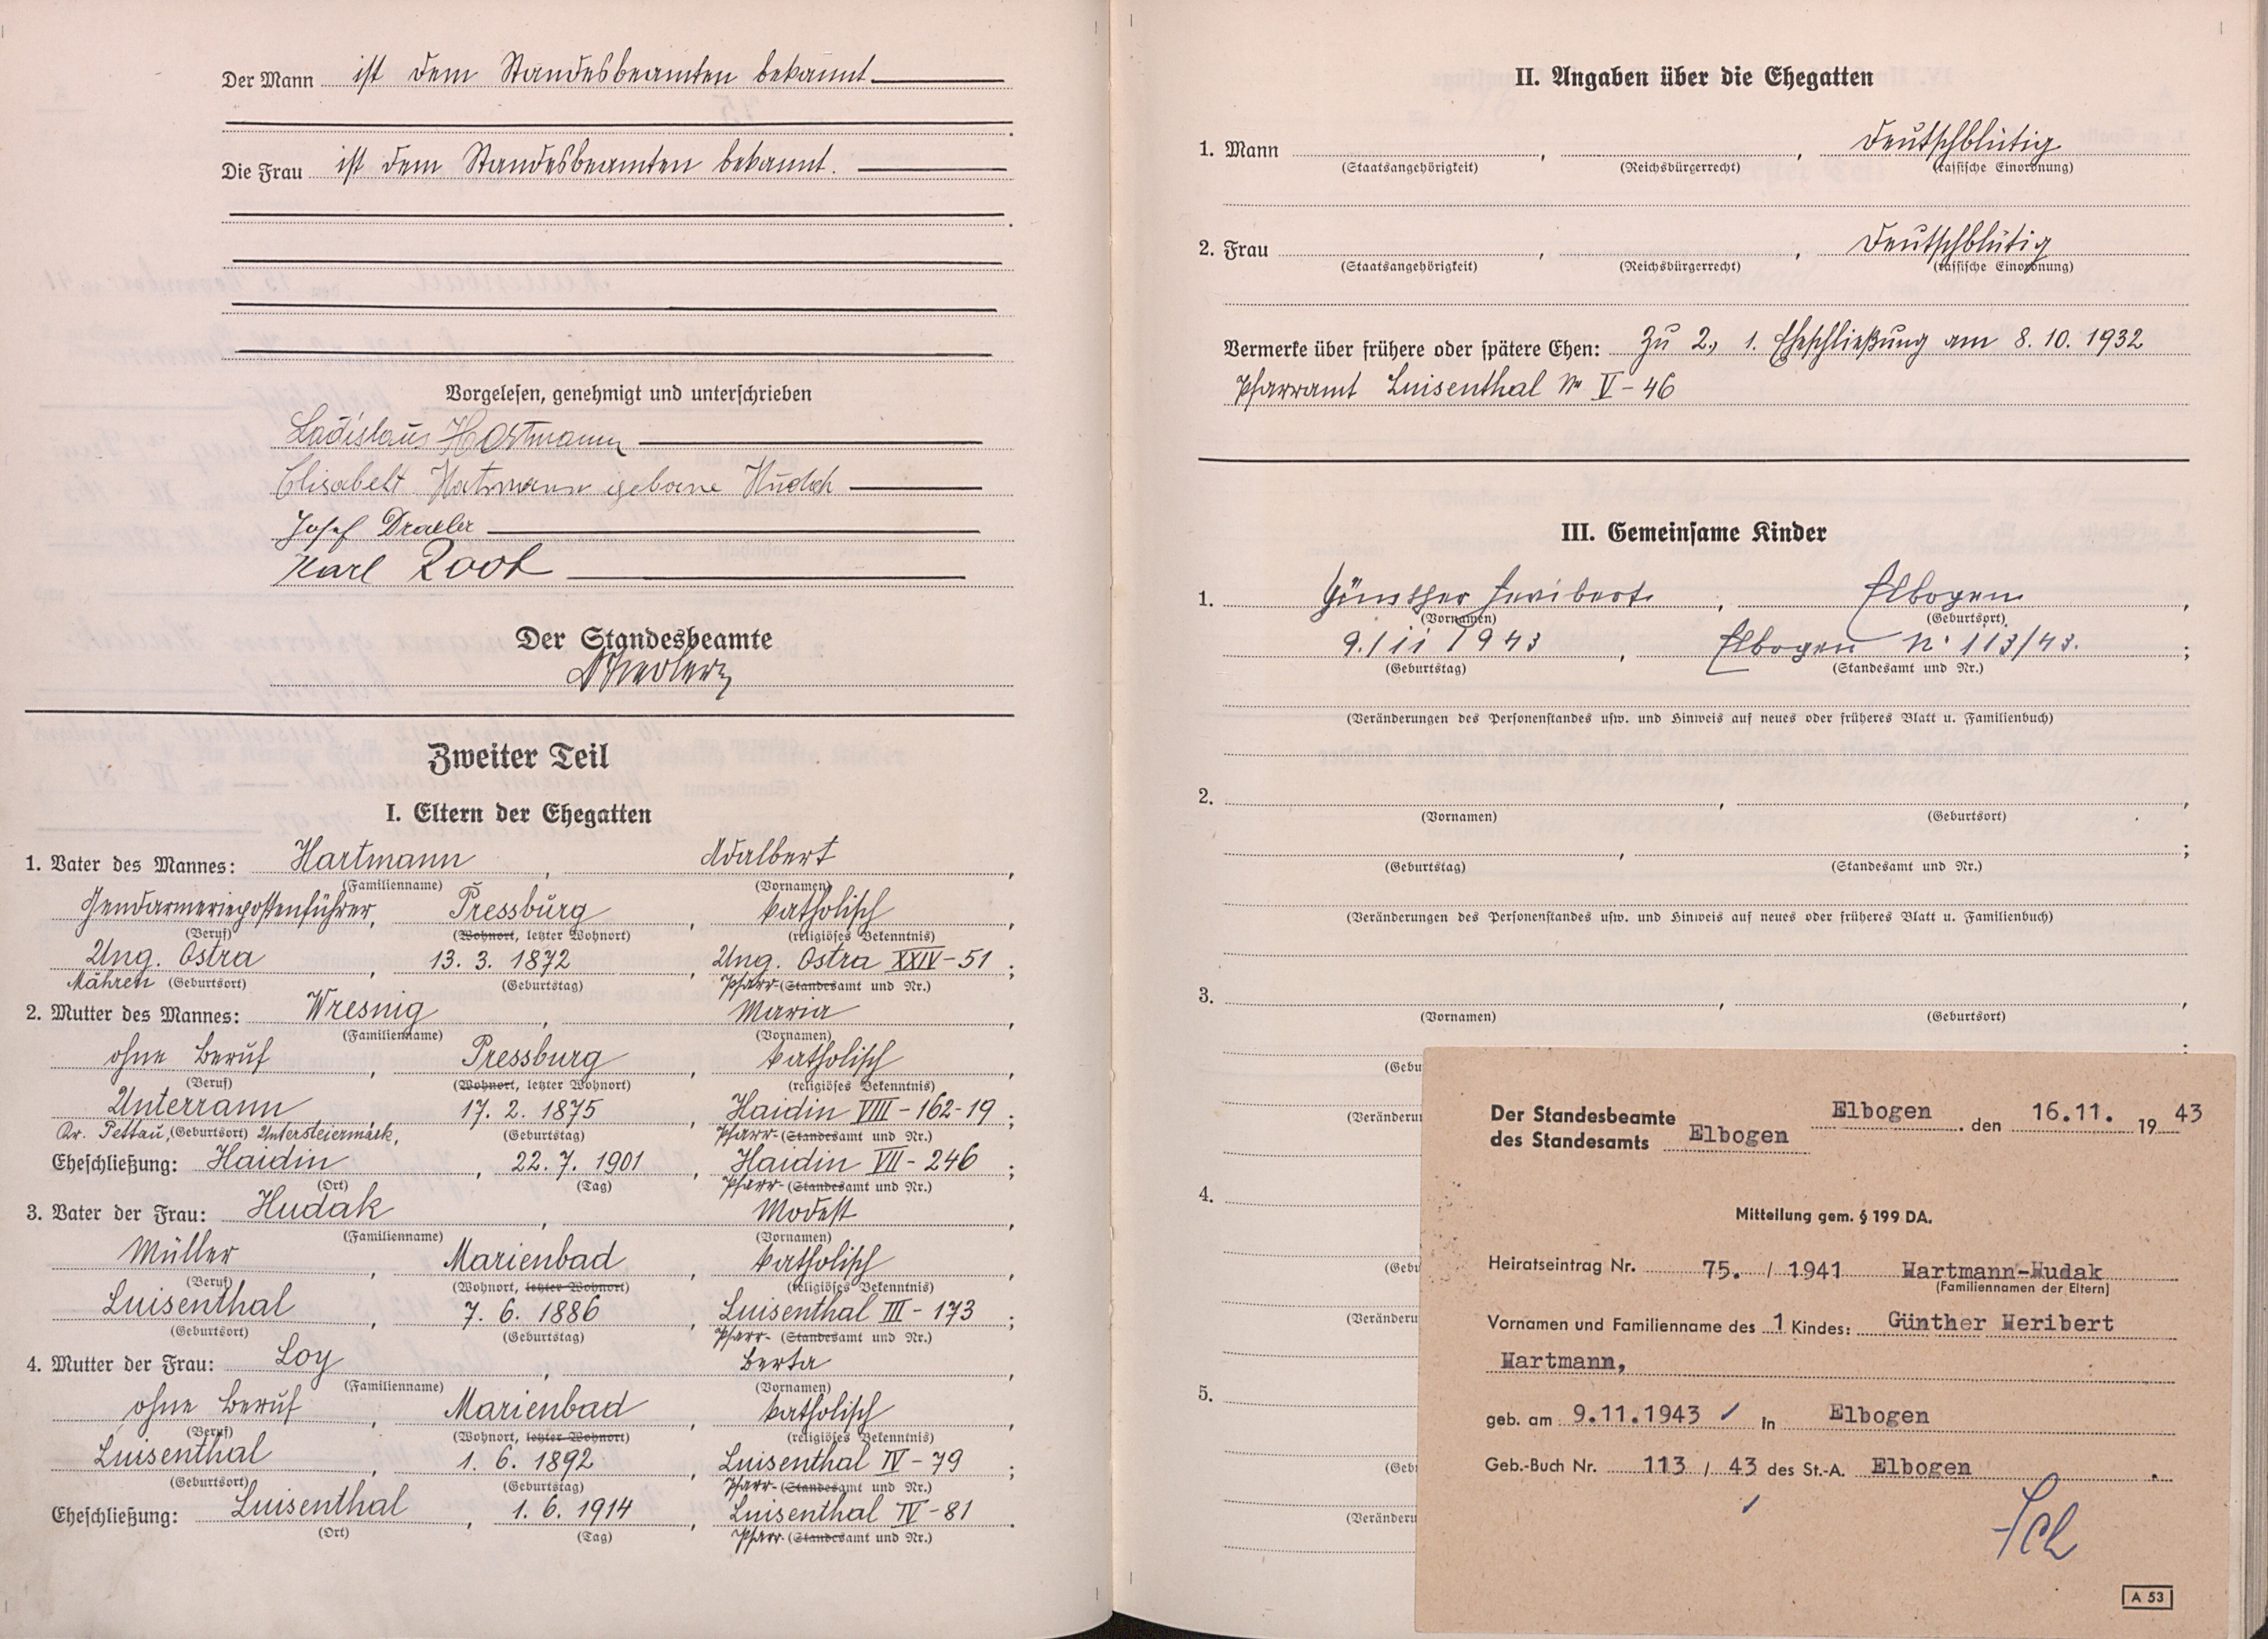 Der Mann ist dem Standesbeamten bekannt.
Die Frau ist dem Standesbeamten bekannt.
Vorgelesen, genehmigt und unterschrieben
Ladislaus Hartmann
Elisabeth Hatmann geborne Hudak
Josef
Karl
Der Standesbeamte
Zweiter Teil
I. Eltern der Ehegatten
1. Vater des Mannes: Hartmann, Adalbert,
(Familienname) (Vornamen)
Gendarmeriepostenführer, Pressburg, katholisch,
(Beruf) (Wohnort, letzter Wohnort) (religiöses Bekenntnis)
Ung. Ostra, 13. 3. 1872, Ung. Ostra XXIV-51;
Mähren (Geburtsort) (Geburtstag) Pfarr-(Standesamt und Nr.)
2. Mutter des Mannes: Wresnig, Maria,
(Familienname) (Vornamen)
ohne Beruf, Pressburg, katholisch,
(Beruf) (Wohnort, letzter Wohnort) (religiöses Bekenntnis)
Unterrann 17. 2. 1875, Haidin VIII-162-19;
Kr. Pettau, (Geburtsort) Untersteiermark, (Geburtstag) Pfarr-(Standesamt und Nr.)
Eheschließung: Haidin, 22. 7. 1901, Haidin VII-246;
(Ort) (Tag) Pfarr-(Standesamt und Nr.)
3. Vater der Frau: Hudak, Modest,
(Familienname) (Vornamen)
Müller, Marienbad, katholisch,
(Beruf) (Wohnort, letzter Wohnort) (religiöses Bekenntnis)
Luisenthal, 7. 6. 1886, Luisenthal III-173;
(Geburtsort) (Geburtstag) Pfarr-(Standesamt und Nr.)
4. Mutter der Frau: Loy, Berta,
(Familienname) (Vornamen)
ohne Beruf, Marienbad, katholisch,
(Beruf) (Wohnort, letzter Wohnort) (religiöses Bekenntnis)
Luisenthal, 1. 6. 1892, Luisenthal IV-79;
(Geburtsort) (Geburtstag) Pfarr-(Standesamt und Nr.)
Eheschließung: Luisenthal, 1. 6. 1914, Luisenthal IV-81.
(Ort) (Tag) Pfarr-(Standesamt und Nr.)
II. Angaben über die Ehegatten
1. Mann , , deutschblütig
(Staatsangehörigkeit) (Reichsbürgerrecht) (rassische Einordnung)
2. Frau , , deutschblütig
(Staatsangehörigkeit) (Reichsbürgerrecht) (rassische Einordnung)
Vermerke über frühere oder spätere Ehen: Zu 2., 1. Eheschließung am 8. 10. 1932
Pfarramt Luisenthal Nr V-46
III. Gemeinsame Kinder
1. Günther Heribert, Elbogen,
(Vornamen) (Geburtsort)
9./11 1943, Elbogen No 113/43.;
(Geburtstag) (Standesamt und Nr.)
(Veränderungen des Personenstandes usw. und Hinweis auf neues oder früheres Blatt u. Familienbuch)
2. , ,
(Vornamen) (Geburtsort)
, ;
(Geburtstag) (Standesamt und Nr.)
(Veränderungen des Personenstandes usw. und Hinweis auf neues oder früheres Blatt u. Familienbuch)
3. , ,
(Vornamen) (Geburtsort)
(Gebu
(Veränderu
4.
(Gebu
(Veränderu
5.
(Geb
(Veränderu
Der Standesbeamte Elbogen, den 16.11. 1943
des Standesamts Elbogen
Mitteilung gem. § 199 DA.
Heiratseintrag Nr. 75. / 1941 Hartmann-Hudak
(Familiennamen der Eltern)
Vornamen und Familienname des 1 Kindes: Günther Heribert
Hartmann,
geb. am 9.11.1943 in Elbogen
Geb.-Buch Nr. 113 / 43 des St.-A. Elbogen.
A 53